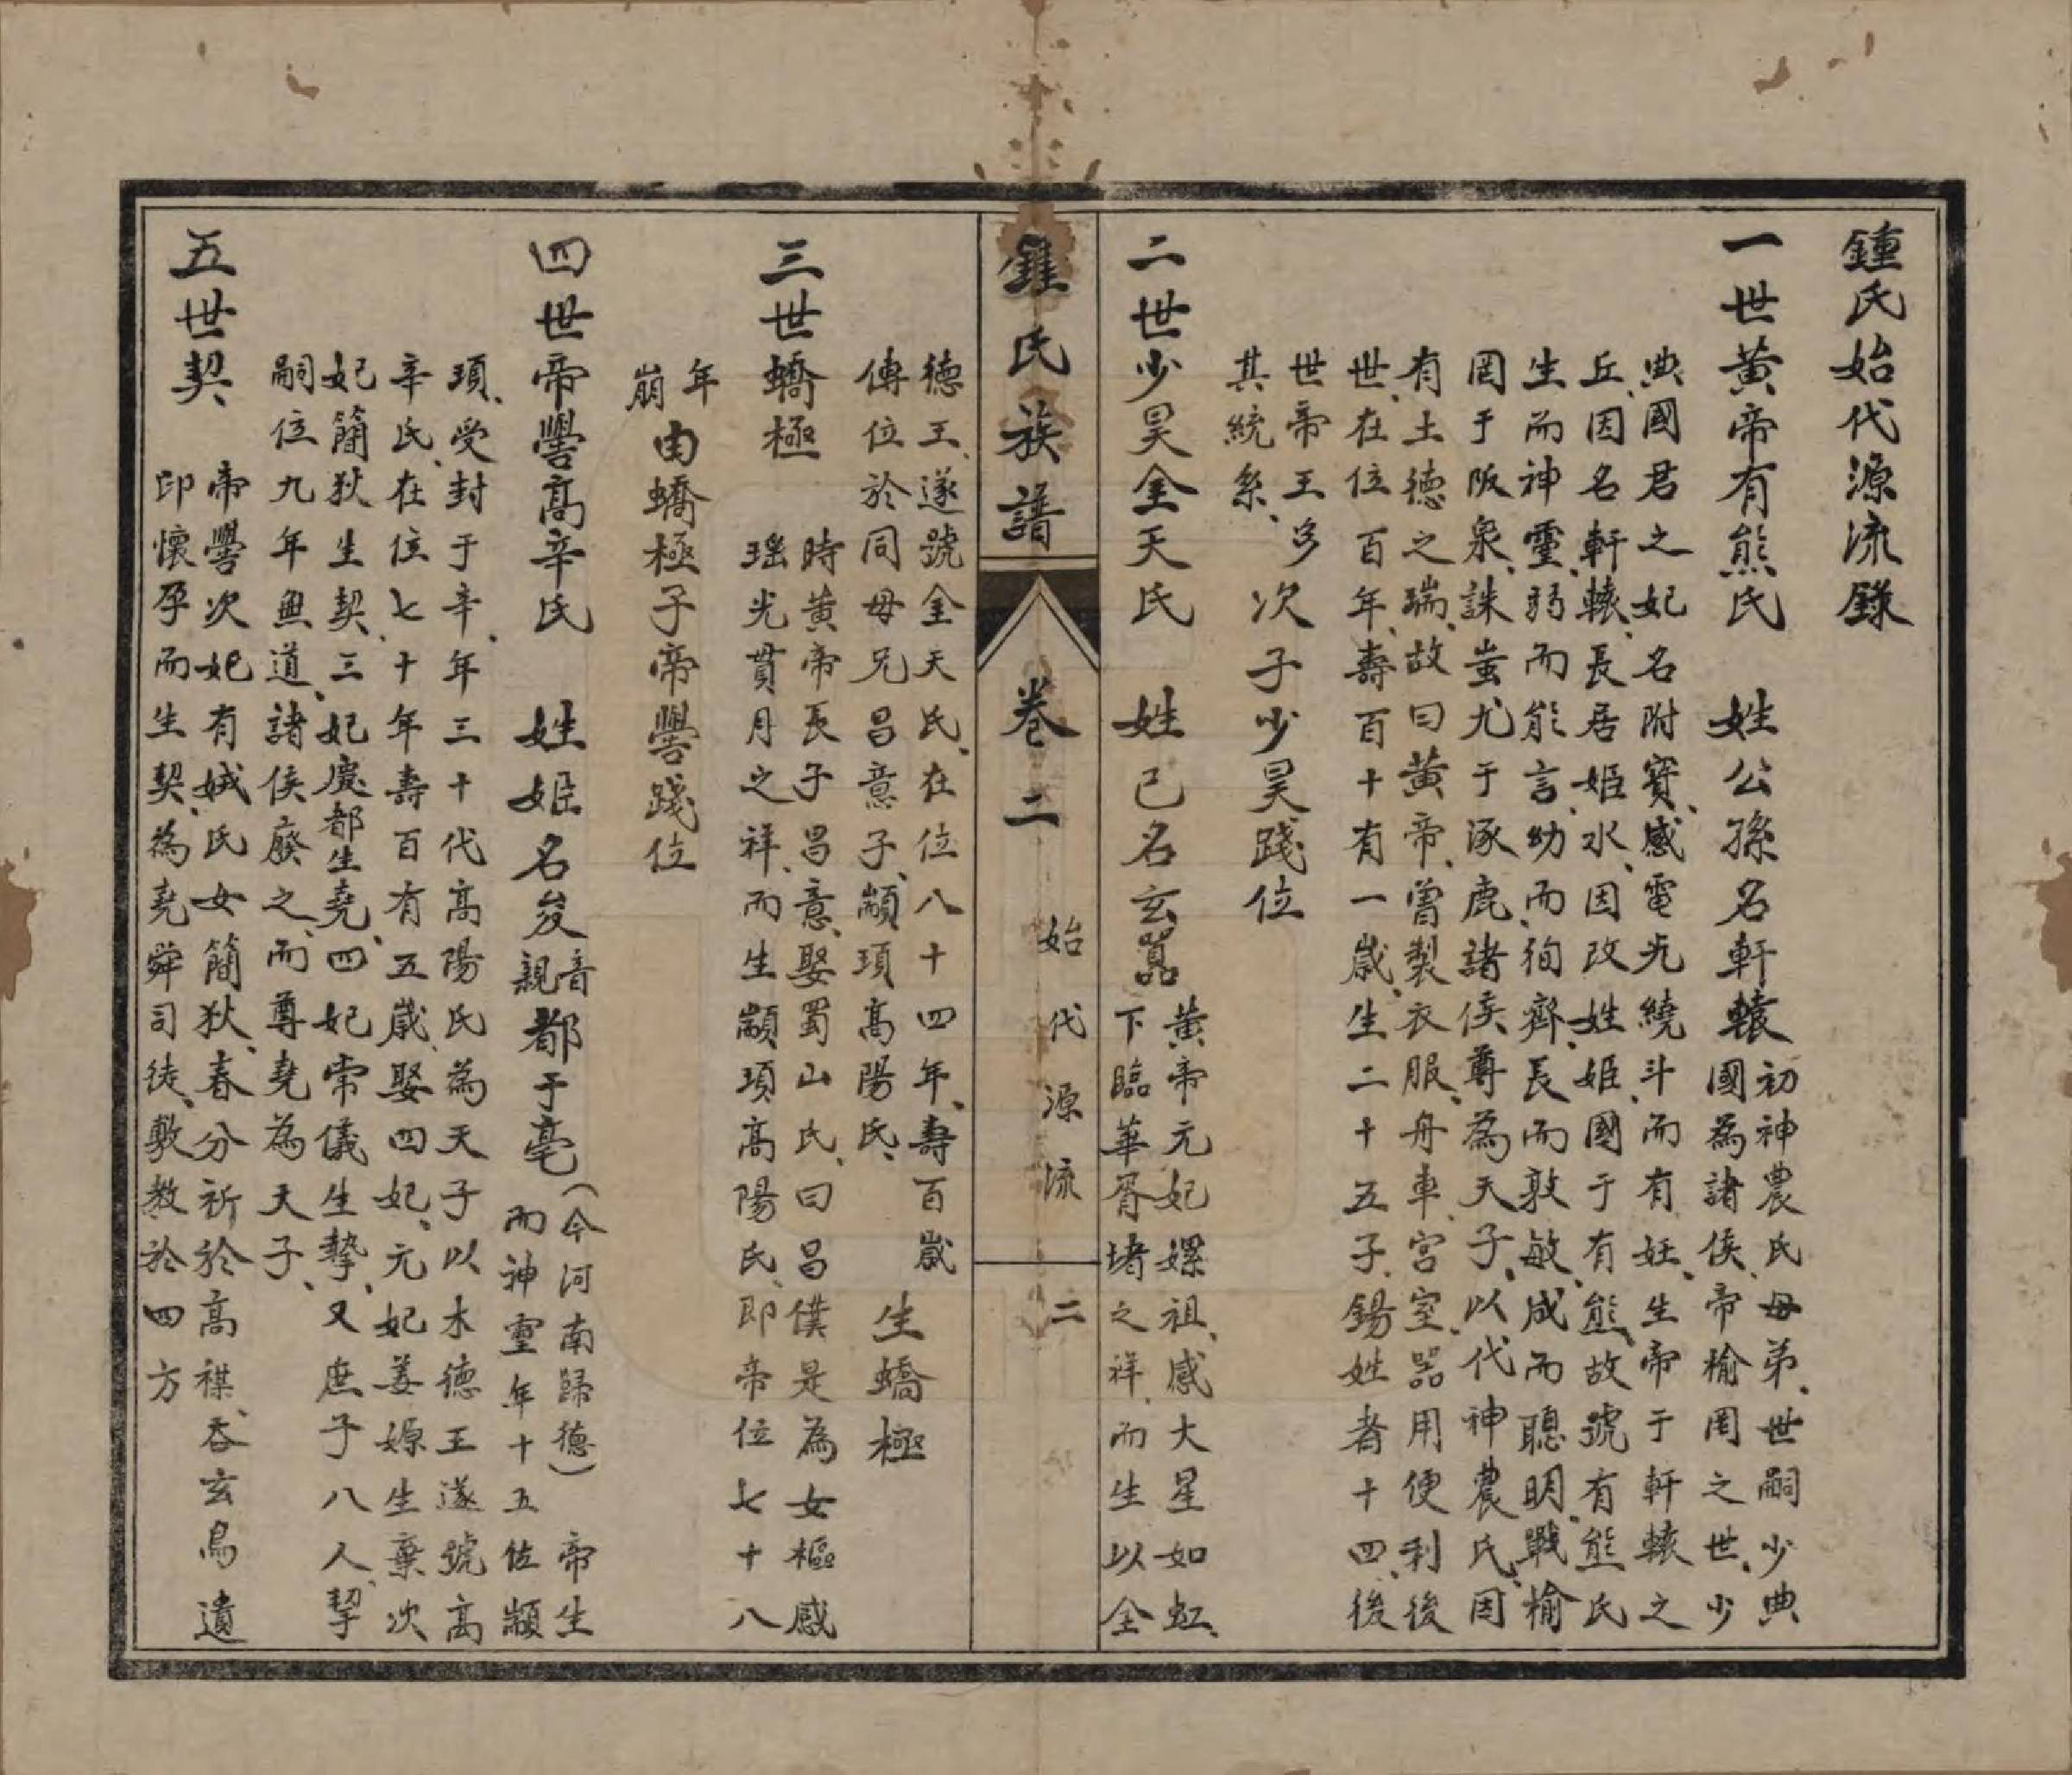 鍾氏始代源流錄
一世黃帝有熊氏　姓公孫名軒轅
初神農氏母弟、世嗣少典
國為諸侯、帝榆罔之世、少
典國君之妃名附寶、感電光繞斗而有妊、生帝于軒轅之
丘、因名軒轅、長居姬水、因改姓姬、國于有熊、故號有熊氏
生而神靈、弱而能言、幼而徇齊、長而敦敏、成而聰明、戰榆
罔于阪泉、誅蚩尤于涿鹿、諸侯尊為天子、以代神農氏、因
有土德之瑞、故曰黃帝、曾製衣服、舟車、宮室、器用便利後
世、在位百年、壽百十有一歲、生二十五子、錫姓者十四、後
世帝王多
其統系、
次子少昊踐位
二世少昊金天氏　姓己名玄囂
黃帝元妃嫘祖、感大星如虹、
下臨華胥堵之祥、而生以金
鍾氏族譜　卷二　始代源流　二
德王、遂號金天氏、在位八十四年、壽百歲
傳位於同母兄昌意子、顓頊高陽氏、
生蟜極
三世蟜極
時黃帝長子昌意、娶蜀山氏、曰昌僕是為女樞感
瑤光貫月之祥、而生顓頊高陽氏、即帝位七十八
年
崩
由蟜極子帝嚳踐位
四世帝嚳高辛氏　姓姬名夋
音
親
都于亳
(今河南歸德)　帝生
而神靈年十五佐顓
頊、受封于辛、年三十代高陽氏為天子以木德王遂號高
辛氏、在位七十年壽百有五歲、娶四妃、元妃姜嫄生棄次
妃簡狄生契、三妃慶都生堯、四妃常儀生摯、又庶子八人、摯
嗣位九年無道、諸侯廢之、而尊堯為天子、
五世契
帝嚳次妃有娀氏女簡狄、春分祈於高禖、吞玄鳥遺
卵懷孕而生契、為堯舜司徒、敷教於四方